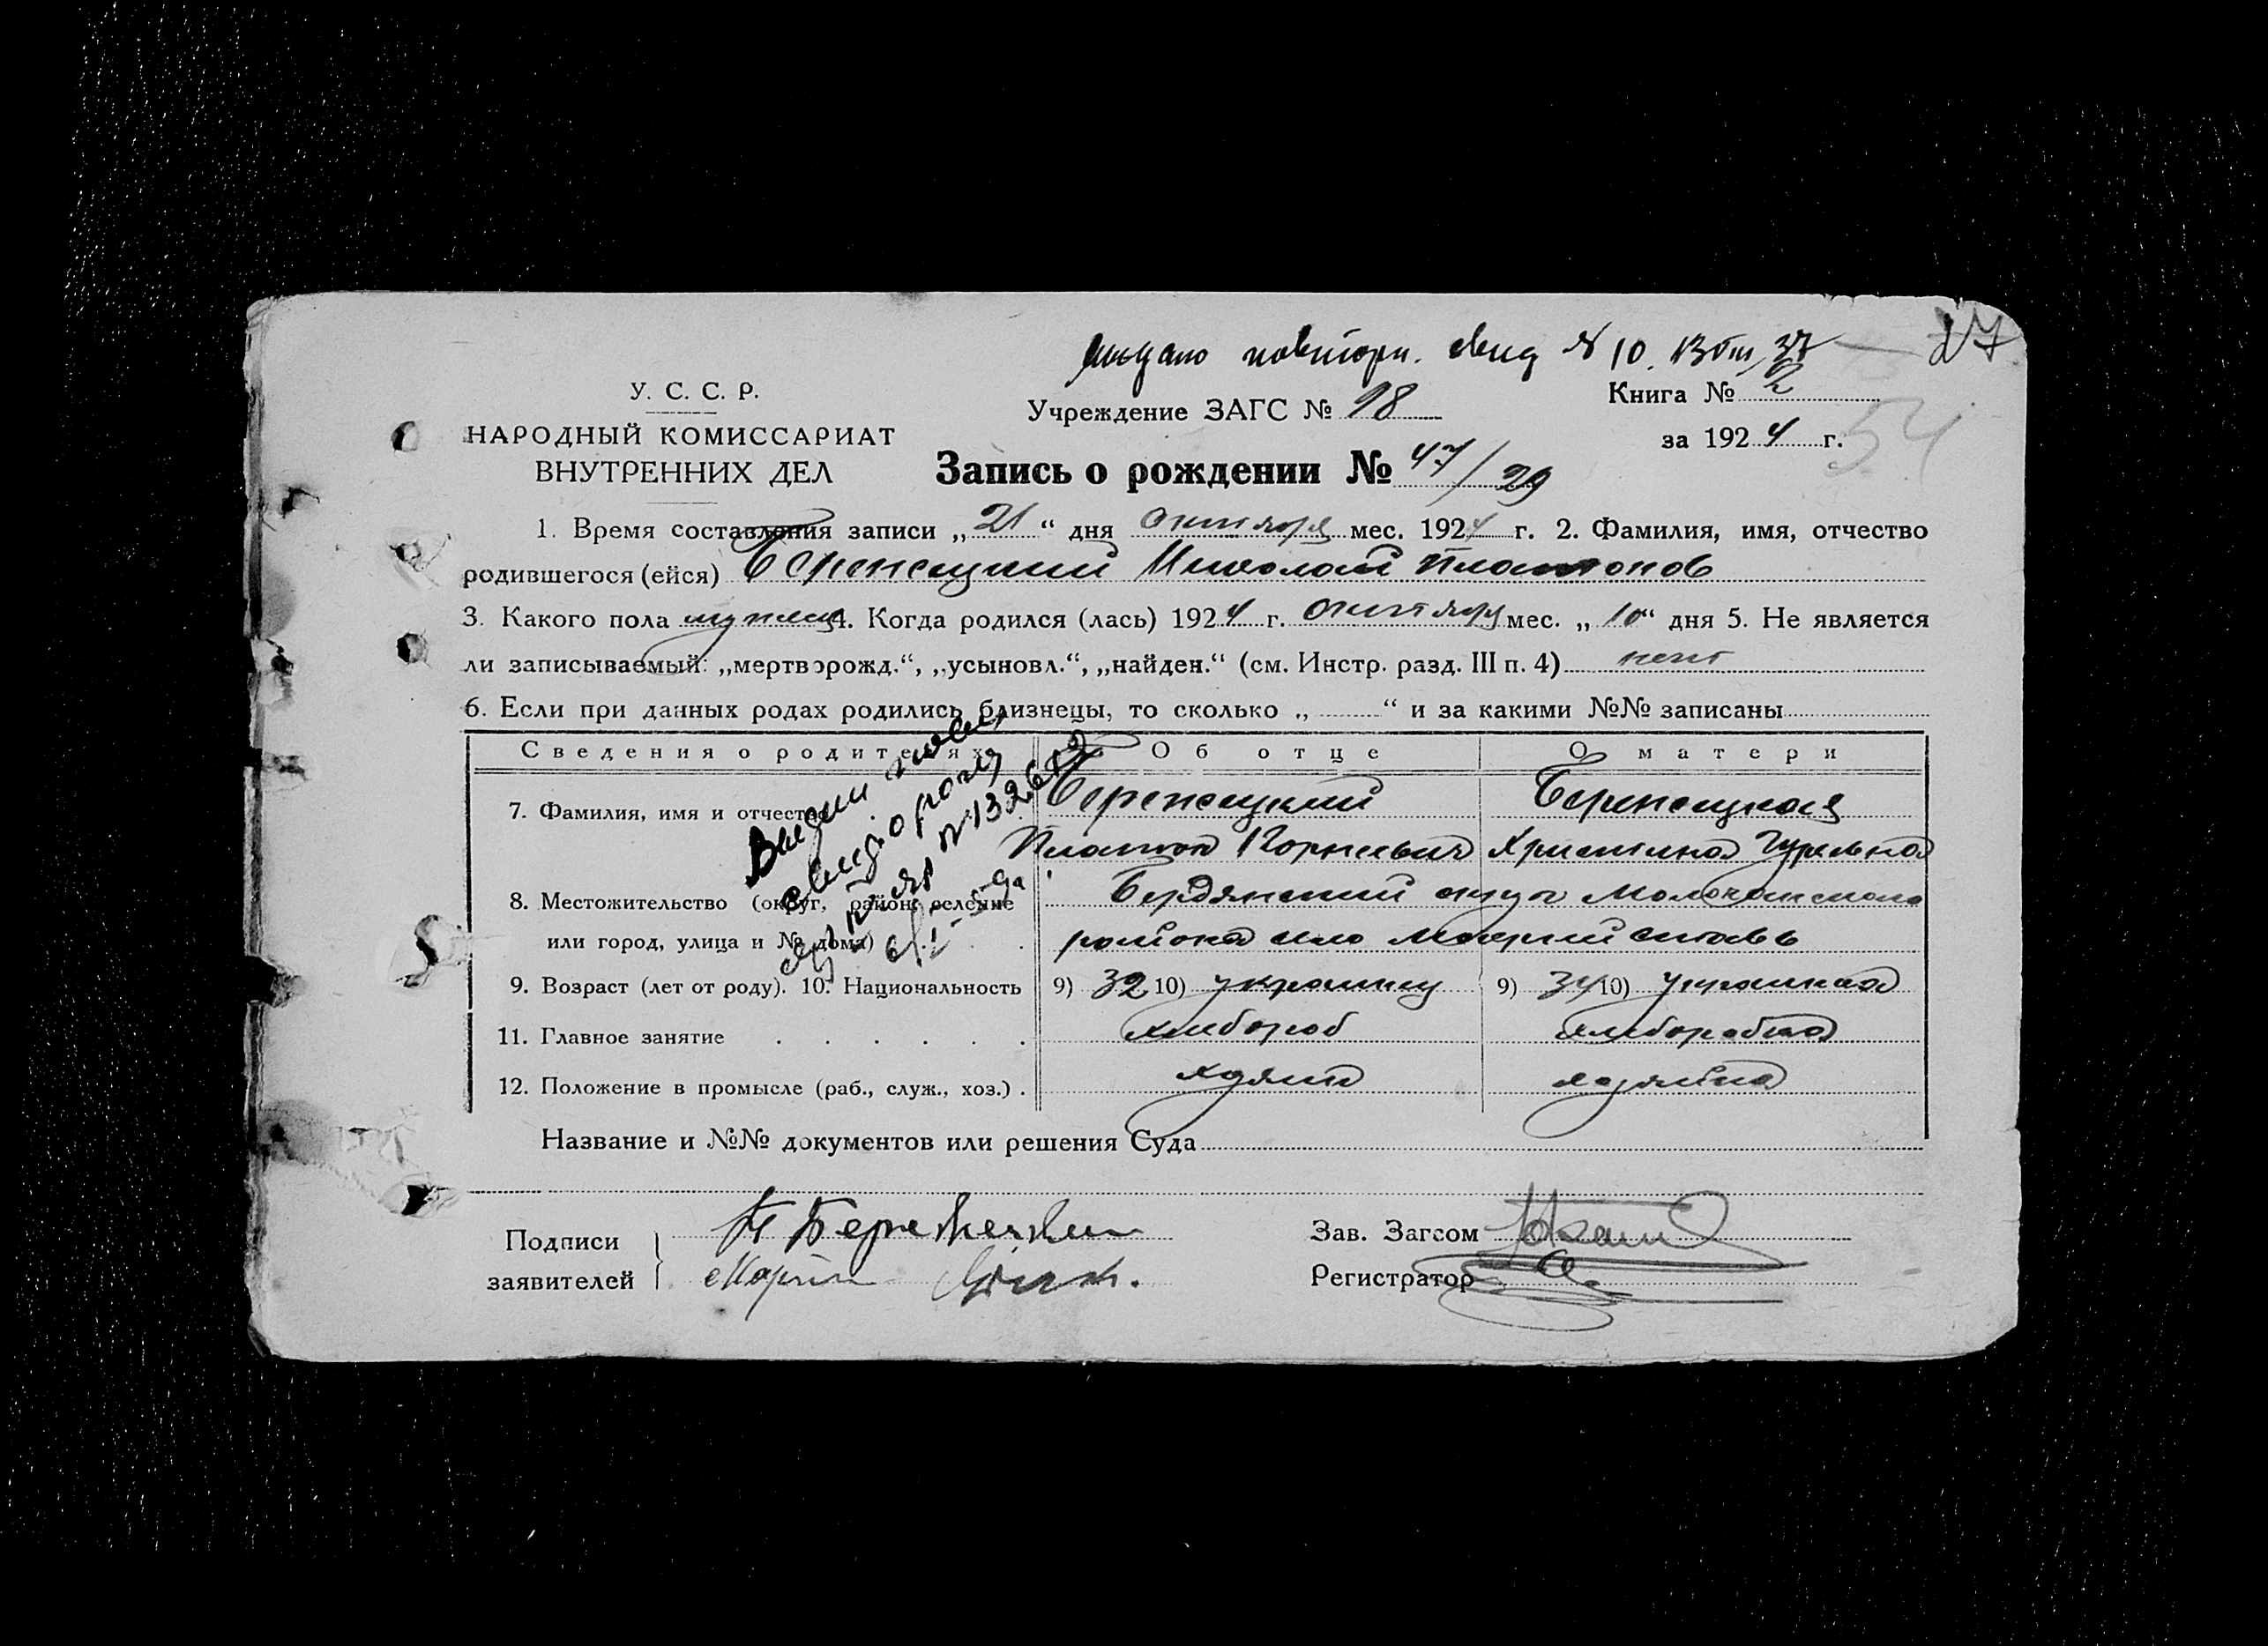 выдано повторн. свид № 10. 13/VIII 37
27
У. С. С. Р.
НАРОДНЫЙ КОМИССАРИАТ
ВНУТРЕННИХ ДЕЛ
Учреждение ЗАГС № 18
Книга № 2
за 1924 г.
54
Запись о рождении № 47/29
1. Время составления записи „21“ дня октября мес. 1924 г. 2. Фамилия, имя, отчество
родившегося (ейся) Николай Платонов
3. Какого пола мужск 4. Когда родился (лась) 1924 г. октября мес. „10“ дня 5. Не является
ли записываемый: „мертворожд.“, „усыновл.“, „найден.“ (см. Инстр. разд. III п. 4) нет
6. Если при данных родах родились близнецы, то сколько „ “ и за какими №№ записаны
Сведения о родителях Об отце О матери
7. Фамилия, имя и отчество
Платон Корнеевич Христина Гурьевна
8. Местожительство (округ, район, селение Бердянский округ Молочанского
или город, улица и № дома) района село Мокрий Ставь
9. Возраст (лет от роду). 10. Национальность 9) 32 10) украинец 9) 34 10) украинка
11. Главное занятие хлебороб хлеборобка
12. Положение в промысле (раб., служ., хоз.) хозяин хозяйка
Выдан
свид. о рожд
№ 132612
Название и №№ документов или решения Суда
Подписи
заявителей
Зав. Загсом
Регистратор